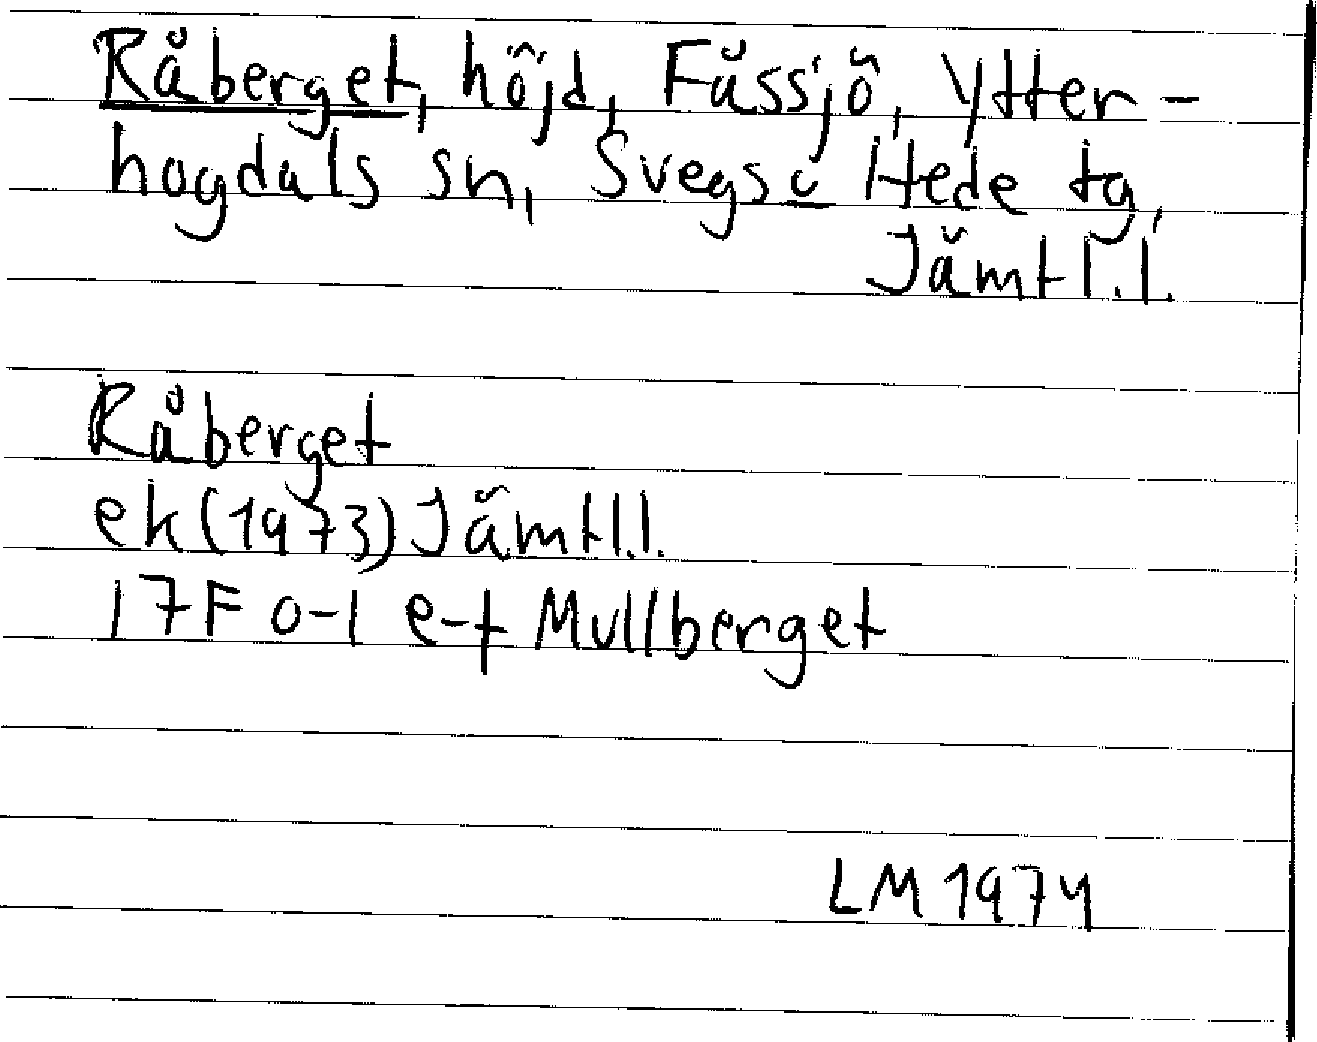 Råberget, höjd, Fåssjö, Ytter-
hogdals sn, Svegs o Hede tg,
Jämtl. l.
Råberget
ek (1973) Jämtl.l.
17F 0-1 e-f Mullberget
LM 1974